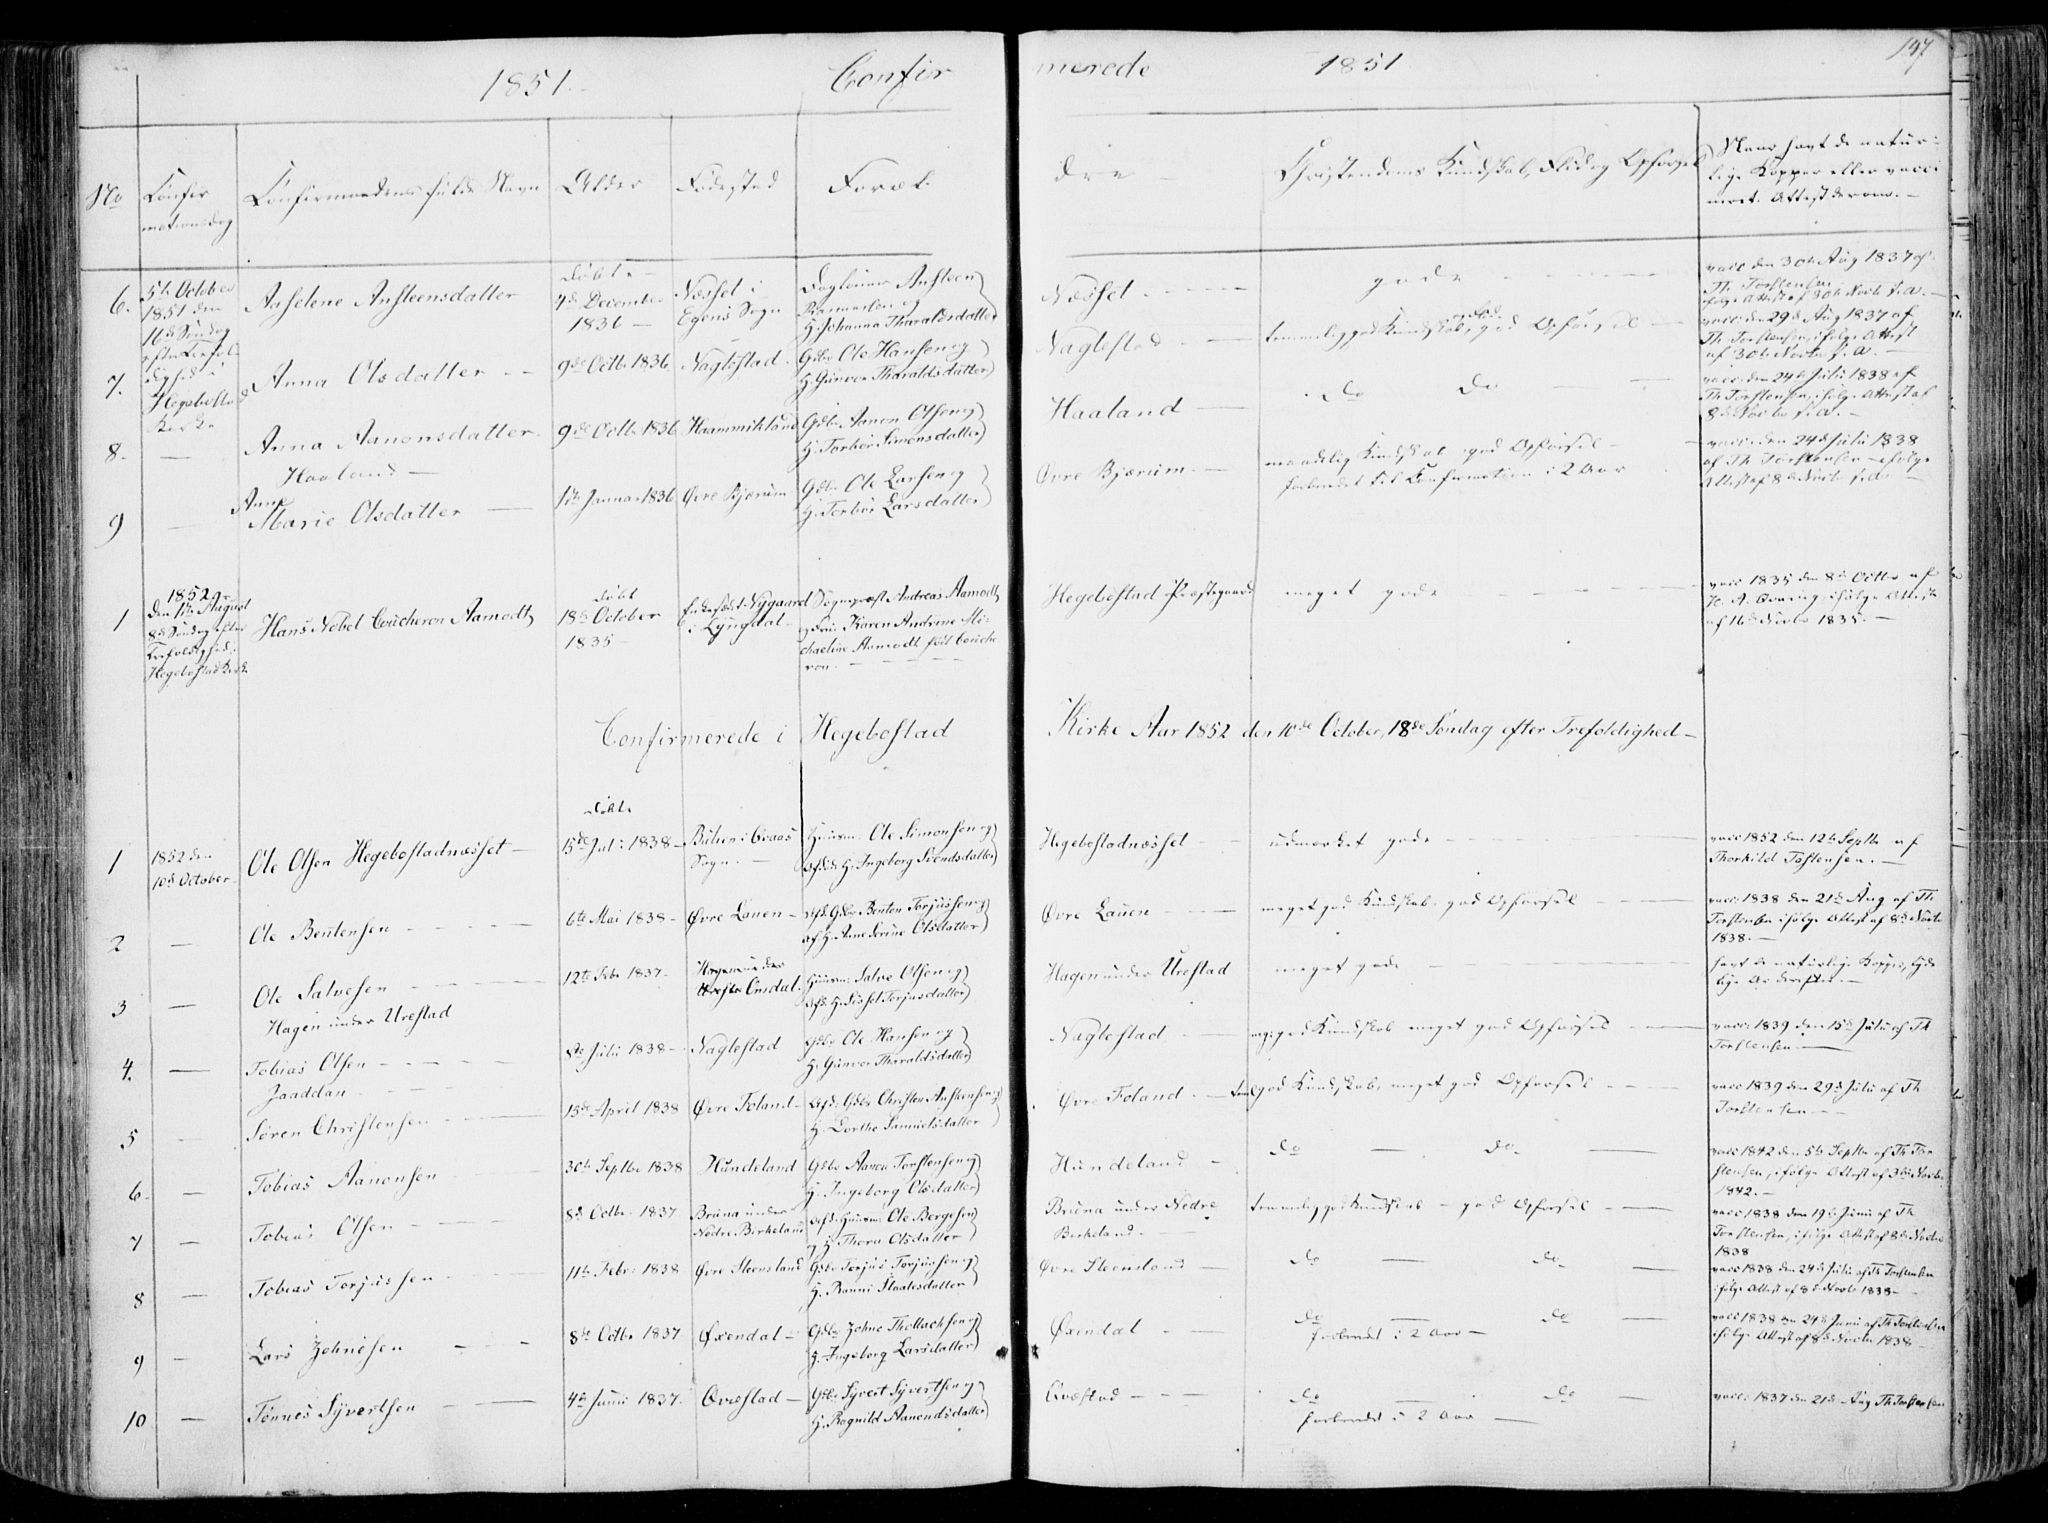 1851. Confirmerede 1851 147
No
Confirmationsdag
Confirmandens fulde Navn
Alder
Fødested
Forældre
Christendoms Kundskab, Flid og Opførsel
Naar havt de naturlige Kopper eller vaccineret. Attest derom.
6. 5te October 1851 den 16de Søndag efter Trefoldighed i Hegebostad Kirke
Anselene Ansteensdatter
døbt 7de December 1836
Næsset i Egens Sogn
Daglønner Ansteen Rasmussen og H. Johanna Tharaldsdatter
Næsset
gode
vacc den 30te Aug 1837 af Th. Torstensen ifølge Attest af 30te Novbr s.a.
7. Anna Olsdatter
9de Octbr 1836
Naglestad
Gdbr Ole Hansen og H. Gunvor Tharaldsdatter
Naglestad
temmelig god Kundskab, god Opførsel
vacc: den 29de Aug 1837 af Th. Torstensen, ifølge Attest af 30te Novbr s.a.
8. Anna Aanonsdatter Haaland
9de Octbr 1836
Gdbr Aanon Olsen og H. Torbör Simonsdatter
Haaland
do do
vacc: den 24de Julii 1838 af Th. Torstensen, ifølge Attest af 8de Novbr s.a.
9 Anne Marie Olsdatter
1te Januar 1836
Øvre Bjærum
Gdbr Ole Larsen og H. Torbör Larsdatter
Øvre Bjærum.
maadelig Kundskab god Opførsel
forberedet til Confirmation i 2 Aar
vacc: den 24de Julii 1838 af Th Torstensen ifølge Attest af 8de Novbr s.a.
1 1852 den 1te August 8de Søndag efter Trefoldighed i Hegebostad Kirke
Hans Nobel Coucheron Aamodt
døbt 18de October 1835
Enkesædet Nygaard i Lyngdal
Sogneprest Andreas Aamodt og Fru Karen Andrine Michaeline Aamodt født Coucheron.
Hegebostad Præstegaard
meget gode
vacc 1835 den 8de Octbr af ifølge Attest af 16de Novbr 1835.
Confirmerede i Hegebostad Kirke Aar 1852 den 10de October, 18de Søndag efter Trefoldighed
1 1852 den 10de October
Ole Olsen Hegebostadnæsset
døbt 15de Juli 1838
Sogn.
Huusm: Ole Simonsen og afd. H. Ingeborg Svendsdatter
Hegebostadnæsset
udmærket gode
vacc 1852 den 12te Septbr af Thorkild Tostensen.
2 Ole Bentensen
6te Mai 1838
Øvre Lauen
Afd. Gdbr Benten Torjussen og af H. Anne Serine Olsdatter
Øvre Lauen
meget god Kundskab, god Opførsel
vacc 1838 den 21de Aug af Th. Torstensen ifølge Attest af 8de Novbr 1838.
3 Ole Salvesen Hagen under Urestad
12te Febr 1837
Huusm: Salve Olsen og afd. H. Sissel Torjusdatter
Hagen under Urestad
meget gode
havt de naturlige Kopper, tydelige Ar derefter.
4. Tobias Olsen Jaaddan
8de Julii 1838
Naglestad
Gdbr Ole Hansen og H. Gunvor Tharaldsdatter
Naglestad
meget god Opførsel
vacc: 1839 den 15de Julii af Th Torstensen
5 Søren Christensen
15de April 1838
Øvre Foland
Afd: Gdbr Christen Ansteensen og H. Dorthe Samuelsdatter
Øvre Foland.
god Kundskab, meget god Opførsel
vacc 1839 den 29de Julii af Th Torstensen
6. Tobias Aanonsen
30te Septbr 1838
Hundeland
Gdbr Aanon Torstensen og H. Ingeborg Olsdatter
Hundeland
do do
vacc 1842 den 5te Septbr af Th Torstensen, ifølge Attest af 3die Novbr 1842.
7 Tobias Olsen
8de Octbr. 1837
Bruna under Nedre Birkeland
Afd. Huusm: Ole Bergesen og H. Thora Olsdatter
Bruna under Nedre Birkeland.
temmelig god Kundskab - god Opførsel
vacc 1838 den 19de Junii af Th Torstensen, ifølge Attest af 8de Novbr 1838
8 Tobias Torjussen
11te Febr: 1838
Øvre Steensland
Gdbr Torjus Torjussen og H. Ranni Staalesdatter
Øvre Steensland
do do
vacc 1838 den 24de Julii af Th Torstensen ifølge Attest af 8de Novbr 1838
9 Lars Johnsen
8de Octbr 1837
Øxendal
Gdbr Johne Thollachsen og H. Ingeborg Larsdatter
Øxendal
do do
forberedt i 2 Aar
vacc 1838 den 24de Junii af Th Torstensen ifølge Attest af 8de Novbr 1838
10 Tønnes Syvertsen
4de Junii 1837.
Qvæstad
Gdbr Syvert Syvertsen og H. Ragnild Aanondsdatter
Qvæstad
do do
forberedt i 2 Aar
vacc: 1837 den 21de Aug Th Torstensen